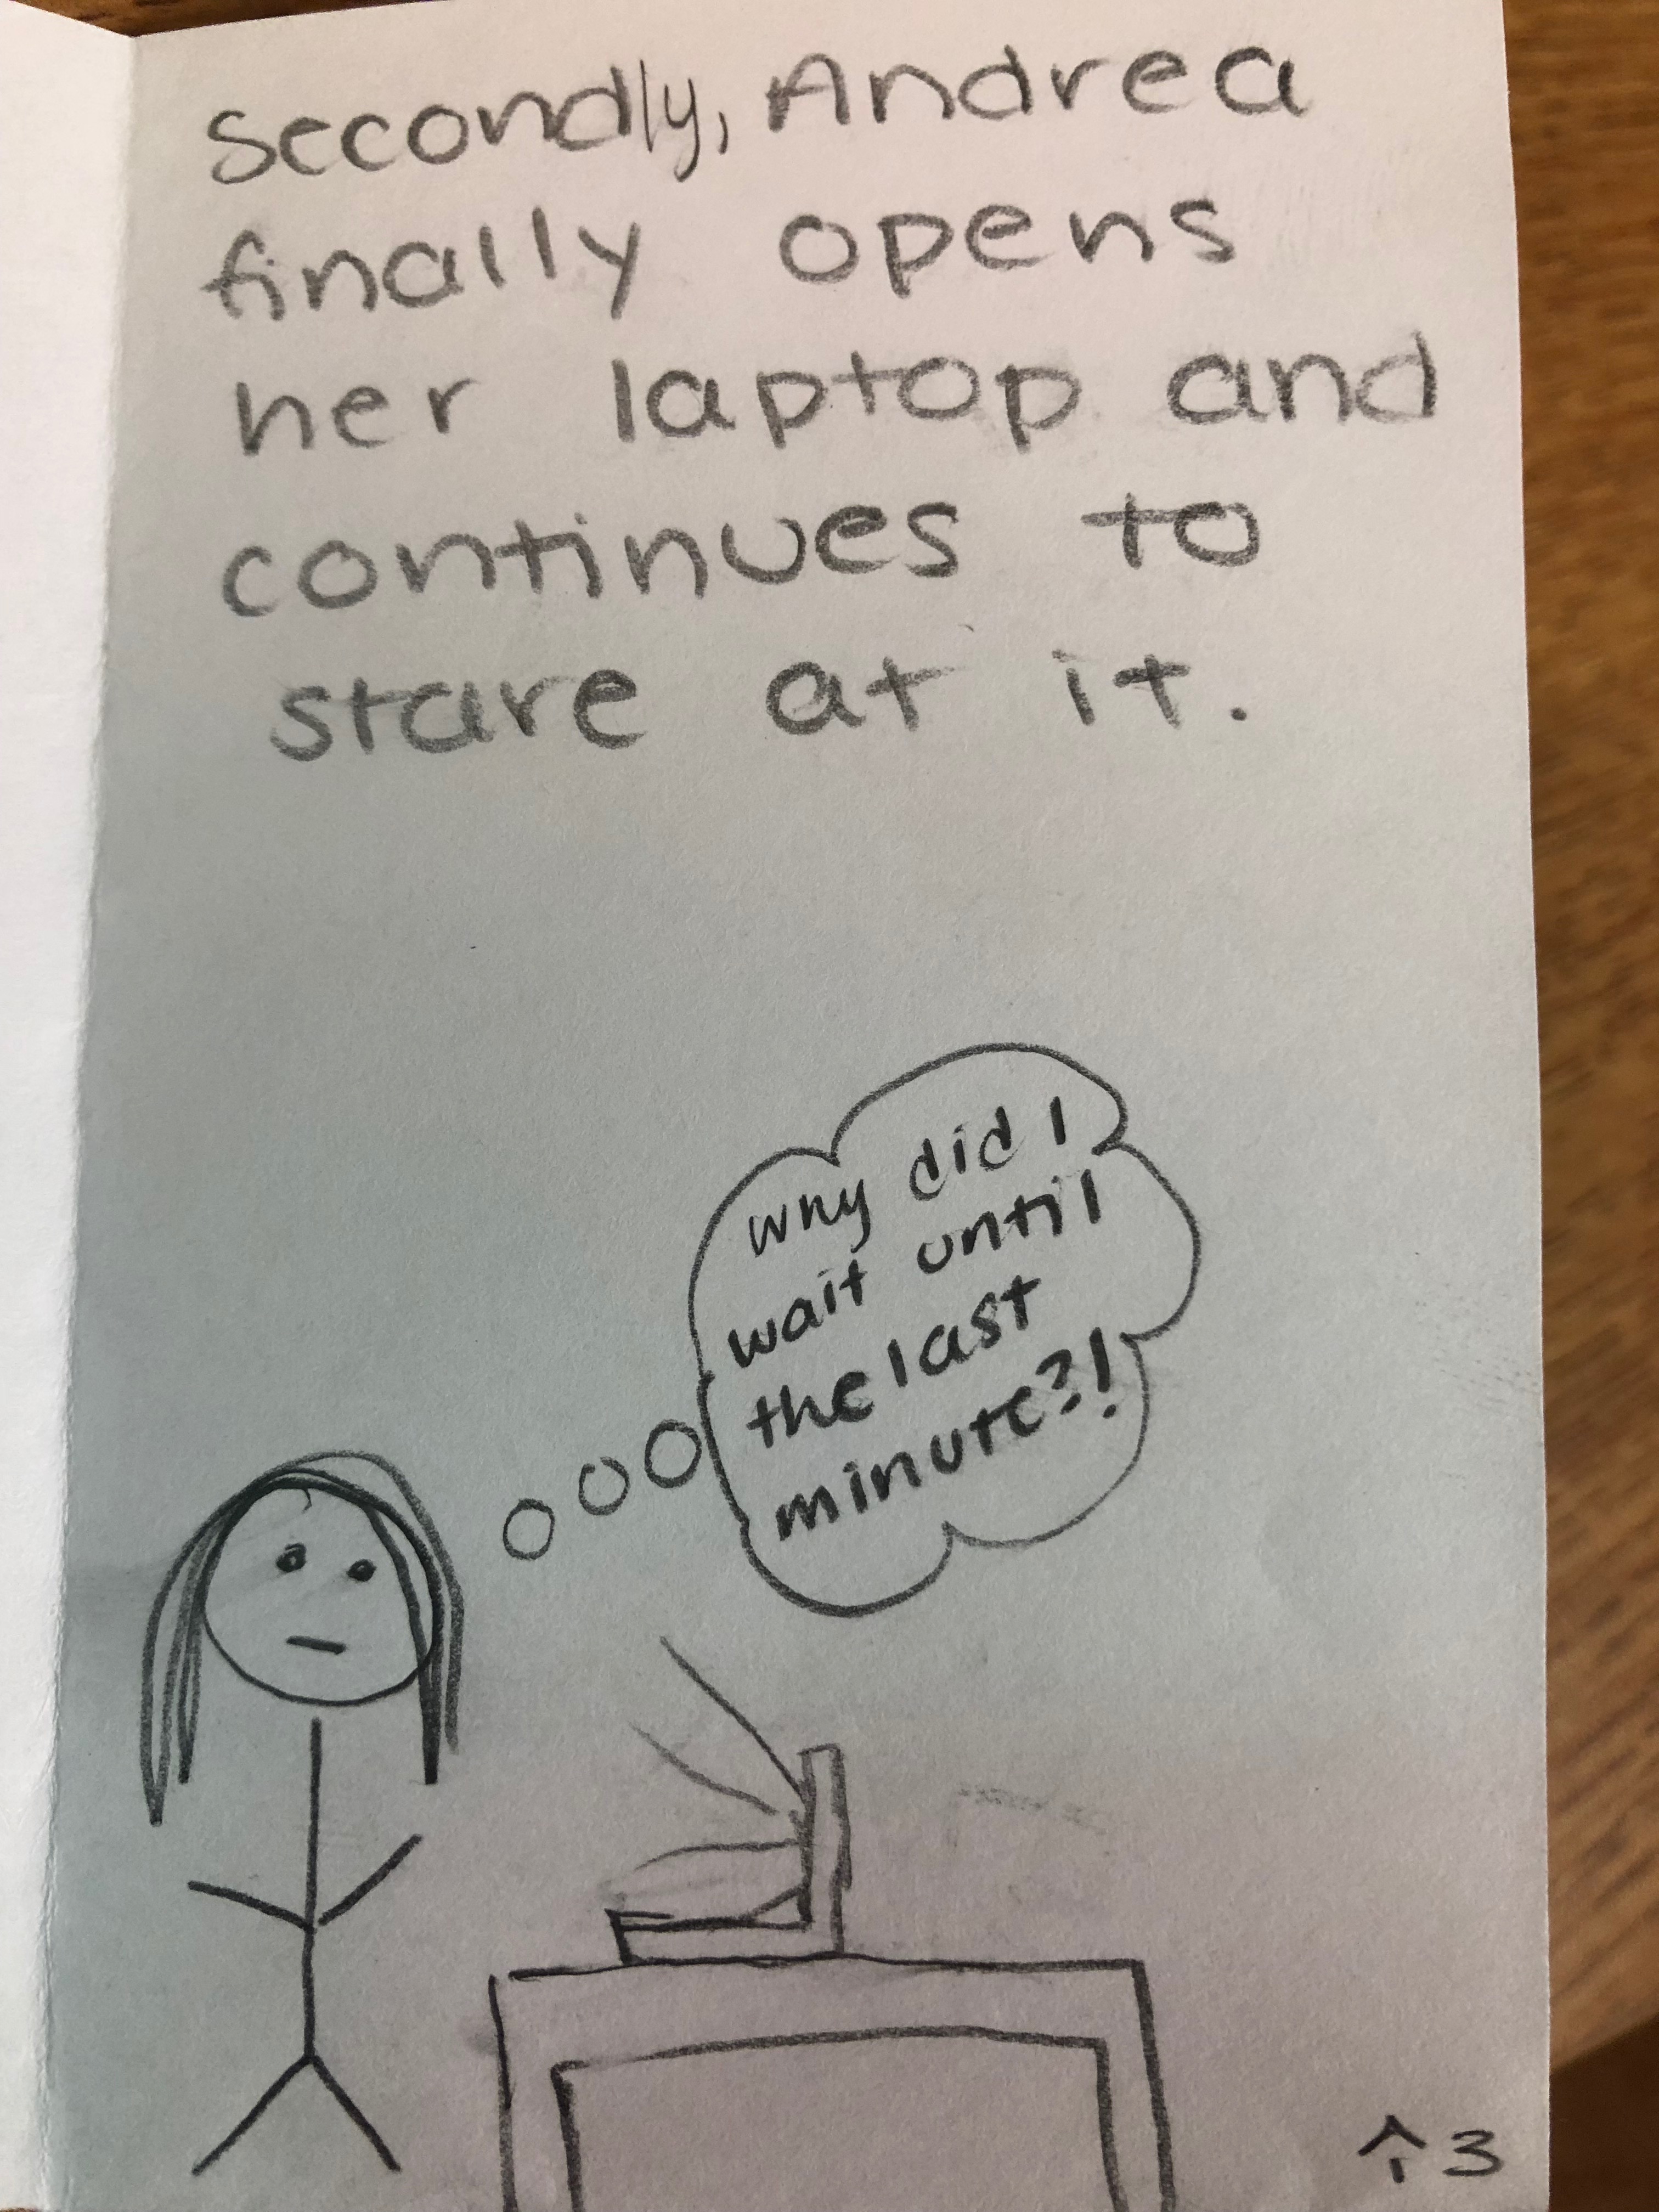 Secondly, Andrea
finally opens
her laptop and
continues to
stare at it.
why did I
wait until
the last
minute?!
↑3